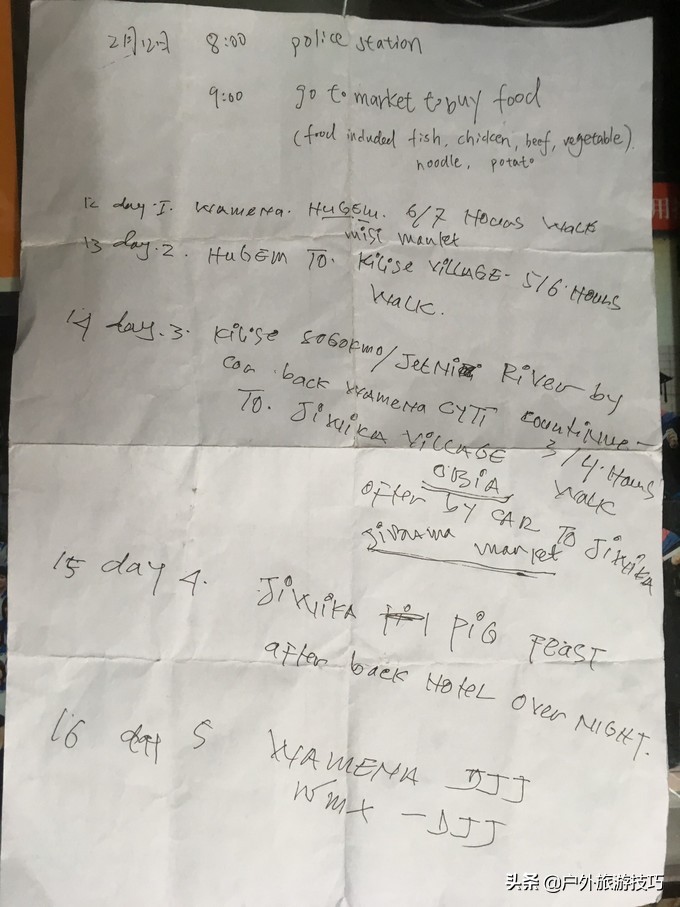 2月12日 8:00 police station
9:00 go to market to buy food
(food included fish, chicken, beef, vegetable).
noodle, potato
12 day.I. wamena. HuGEM. 6/7 Hours walk
misi market
13 day.2. HuGEM To. Kilise Village- 5/6 Hours
walk.
14 day.3. Kilise sogokmo/Jetni River by
car back wamena CYTi countinue-
To. Jiwika village 3/4 Hours
walk
OBiA
after by CAR To Jiwika
market
15 day 4. Jiwika Pig Feast
after back Hotel over NIGHT.
16 day 5 WAMENA DJJ
WMX - DJJ
用
头条 @户外旅游技巧